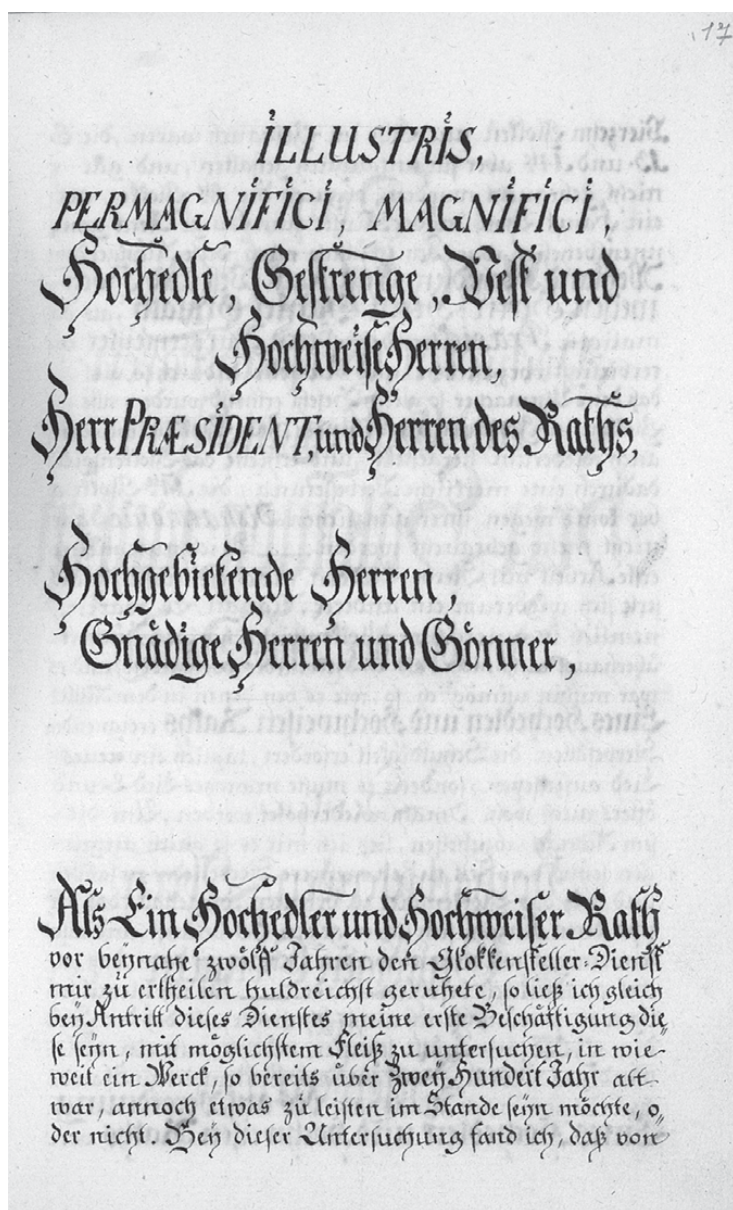 17
ILLUSTRIS,
PERMAGNIFICI, MAGNIFICI,
Hochedle, Gestrenge, Vest und
Hochweise Herren,
Herr PRÆSIDENT, und Herren des Raths,
Hochgebietende Herren,
Gnädige Herren und Gönner,
Als Ein Hochedler und Hochweiser Rath
vor beynahe zwölff Jahren den Glokkensteller-Dienst
mir zu ertheilen huldreichst geruhete, so ließ ich gleich
bey Antritt dieses Dienstes meine erste Beschäftigung die-
se seyn, mit möglichstem Fleiß zu untersuchen, in wie-
weit ein Werck, so bereits über Zwey Hundert Jahr alt
war, annoch etwas zu leisten im Stande seyn möchte, o-
der nicht. Bey dieser Untersuchung fand ich, daß von